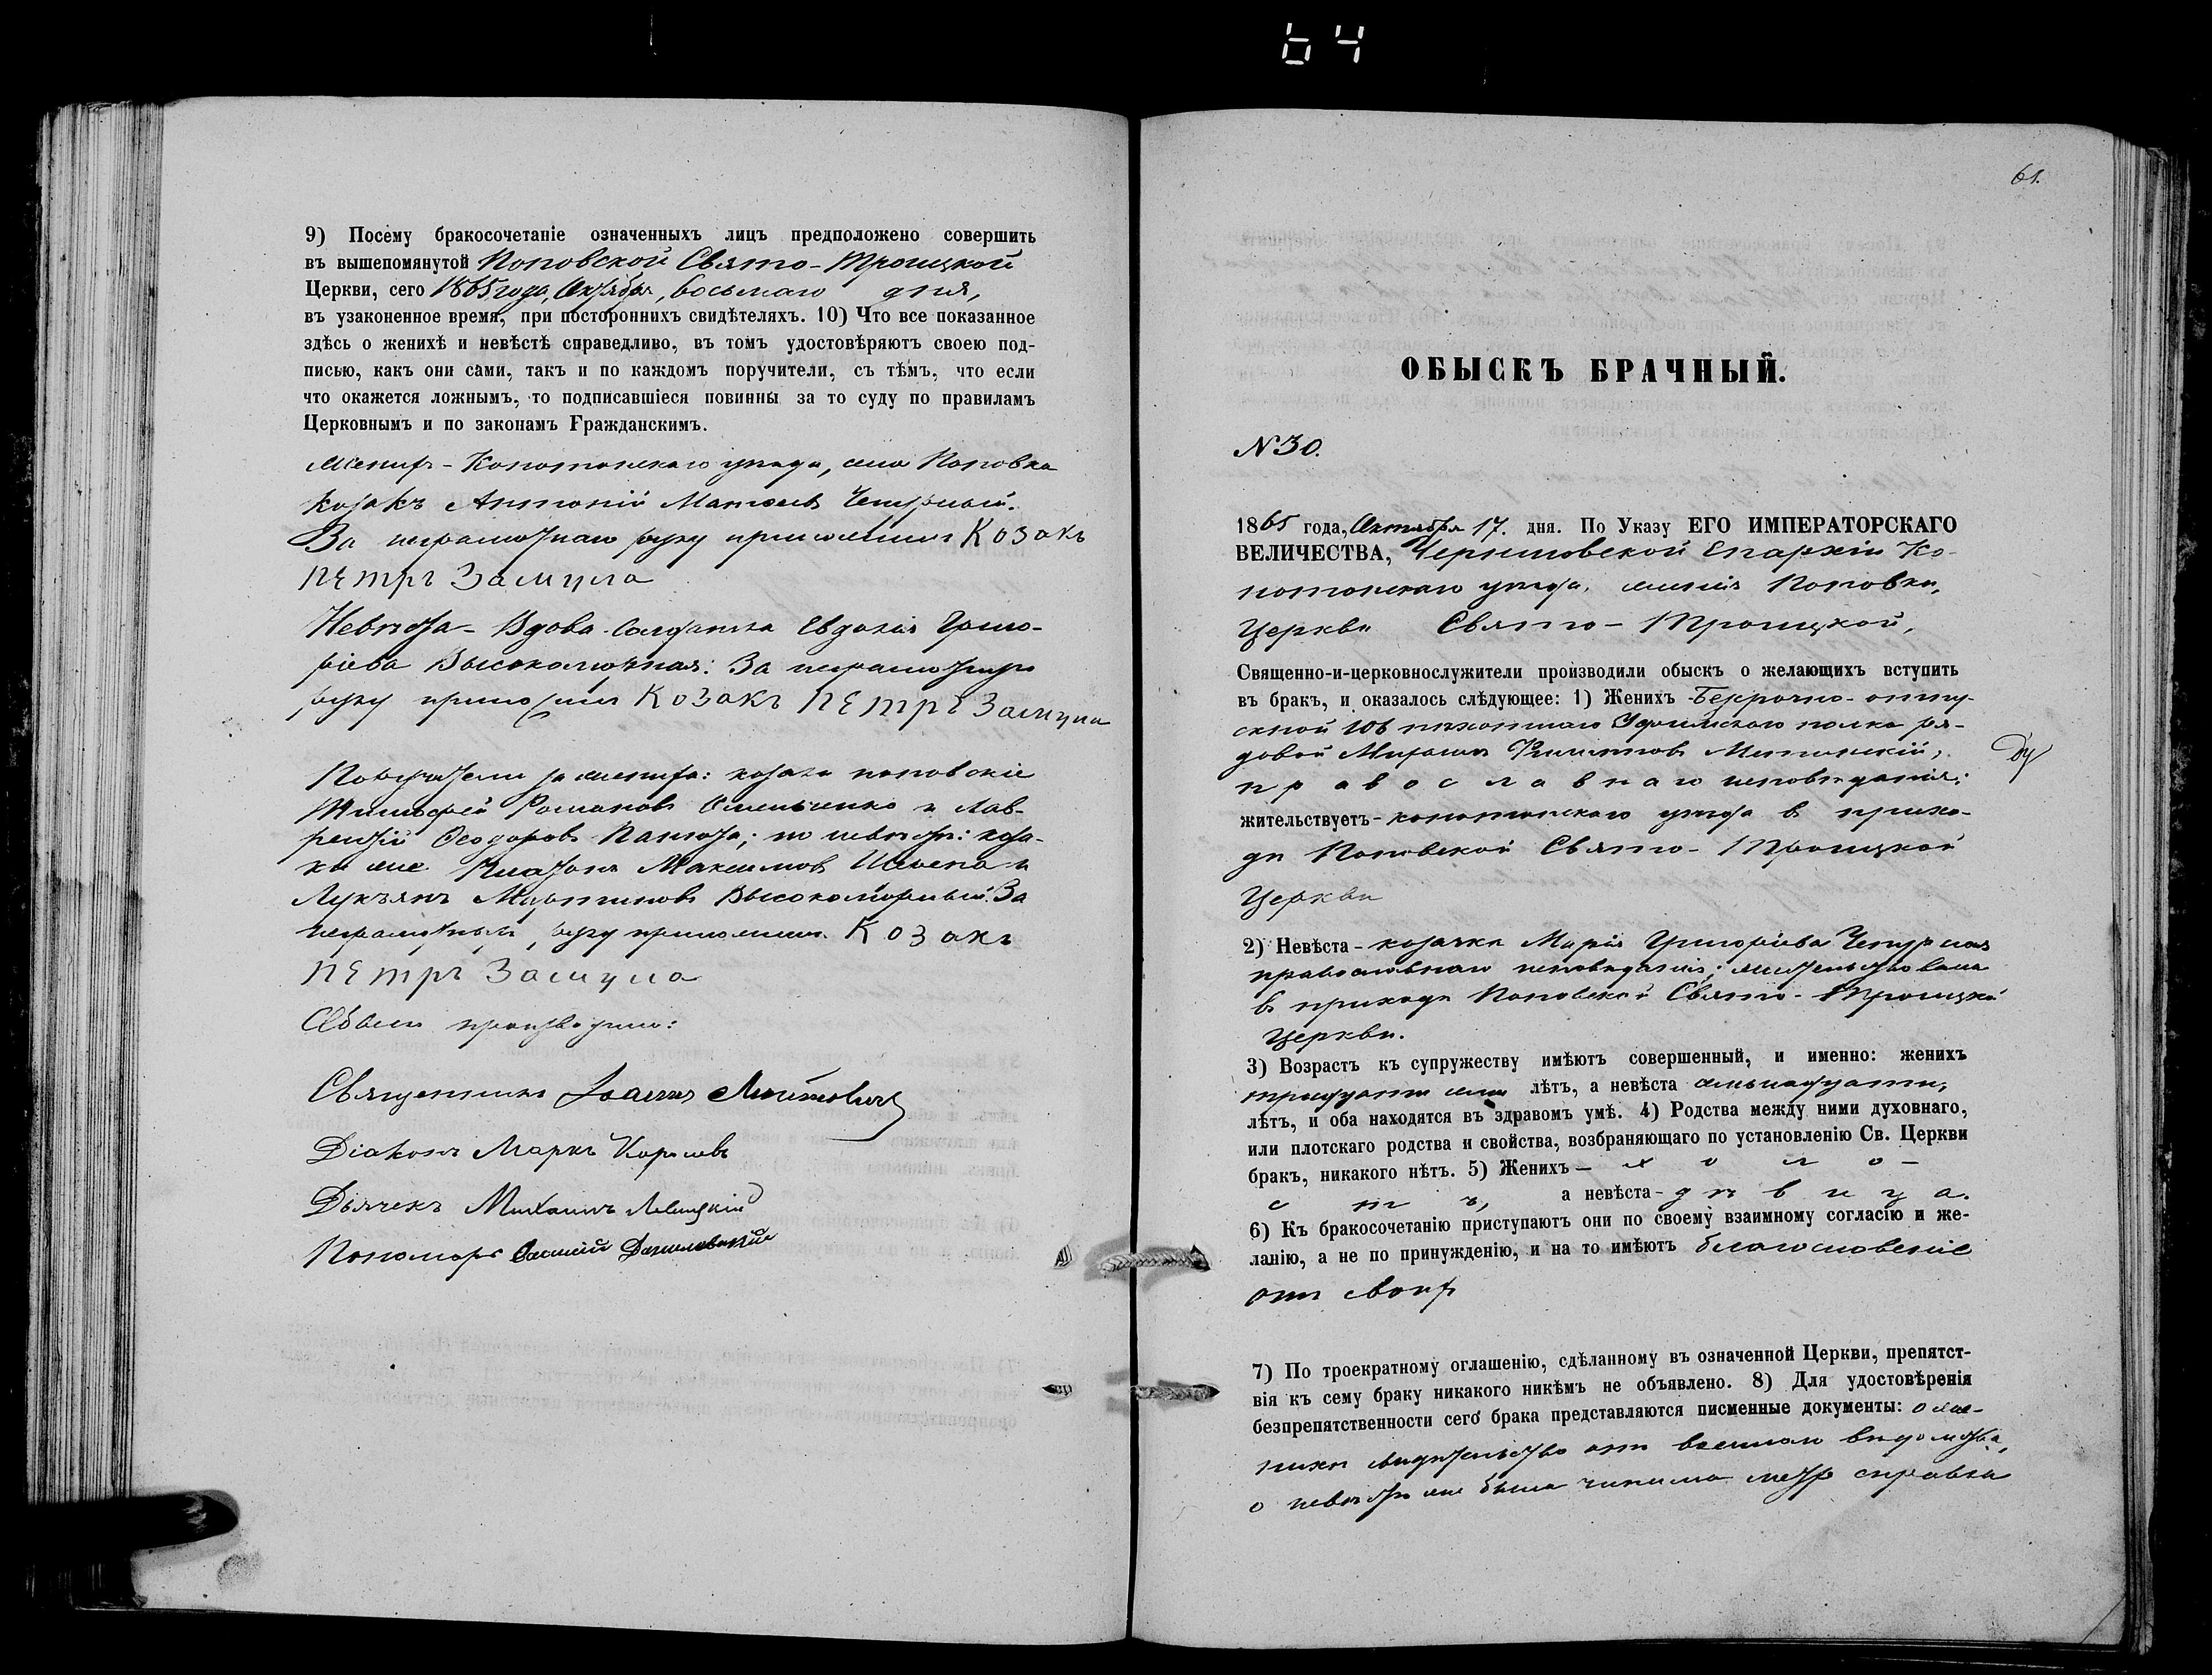 64
9) Посему бракосочетаніе означенныхъ лицъ предположено совершить
въ вышепомянутой Поповской Свято-Троицкой
Церкви, сего 1865 года, Октября, восьмаго дня,
въ узаконенное время, при постороннихъ свидѣтеляхъ. 10) Что все показанное
здѣсь о женихѣ и невѣстѣ справедливо, въ томъ удостовѣряютъ своею под-
писью, какъ они сами, такъ и по каждомъ поручители, съ тѣмъ, что если
что окажется ложнымъ, то подписавшіеся повинны за то суду по правиламъ
Церковнымъ и по законамъ Гражданскимъ.
Женихъ - Конотопскаго уѣзда, села Поповка
козакъ Антоній Чепурный.
За неграмотнаго руку приложилъ Козакъ
пЕтръ Замула
Невѣста - Вдова Солдатка Евдокія Григо-
ріева Высокоморная: За неграмотную
руку приложилъ Козакъ пЕтръ Замула
Поручители за жениха: козаки поповскіе
Тимофей Романовъ Омельченко и Лав-
рентій Ѳеодоровъ; по невѣсте: коза-
ки же Платонъ Максимовъ и
Лукъянъ Мартиновъ Высокоморный. За
неграмотныхъ, руку приложилъ Козакъ
пЕтръ Замула
Обыскъ производили:
Священникъ Іоаннъ
Діаконъ Маркъ
Дьячекъ Михаилъ Левицкій
Пономарь
61.
ОБЫСКЪ БРАЧНЫЙ.
N 30.
1865 года, Октября 17. дня. По Указу ЕГО ИМПЕРАТОРСКАГО
ВЕЛИЧЕСТВА, Черниговской Епархіи Ко-
нотопскаго уѣзда, Поповки,
Церкви Свято-Троицкой,
Священно-и-церковнослужители производили обыскъ о желающихъ вступить
въ бракъ, и оказалось слѣдующее: 1) Женихъ - Безсрочно-отпу-
скной 106 пѣхотнаго Уфимскаго полка ря-
довой Филиповъ
православнаго исповѣданія;
жительствуетъ - конотопскаго уѣзда в прихо-
дѣ Поповской Свято-Троицкой
Церкви
2) Невѣста - козачка Марія Григоріева Чепурная
православнаго исповѣданія; жительствовала
въ приходѣ Поповской Свято-Троицкой
Церкви.
3) Возрастъ къ супружеству имѣютъ совершенный, и именно: женихъ
тридцати лѣтъ, а невѣста
лѣтъ, и оба находятся въ здравомъ умѣ. 4) Родства между ними духовнаго,
или плотскаго родства и свойства, возбраняющаго по установленію Св. Церкви
бракъ, никакого нѣтъ. 5) Женихъ - холо-
стъ, а невѣста - дѣвица.
6) Къ бракосочетанію приступаютъ они по своему взаимному согласію и же-
ланію, а не по принужденію, и на то имѣютъ благословеніе
отъ
7) По троекратному оглашенію, сдѣланному въ означенной Церкви, препятст-
вія къ сему браку никакого никѣмъ не объявлено. 8) Для удостовѣренія
безпрепятственности сего брака представляются писменные документы: о же-
нихѣ свидѣтельство отъ военнаго вѣдомства,
о невѣстѣ же была чинима справка